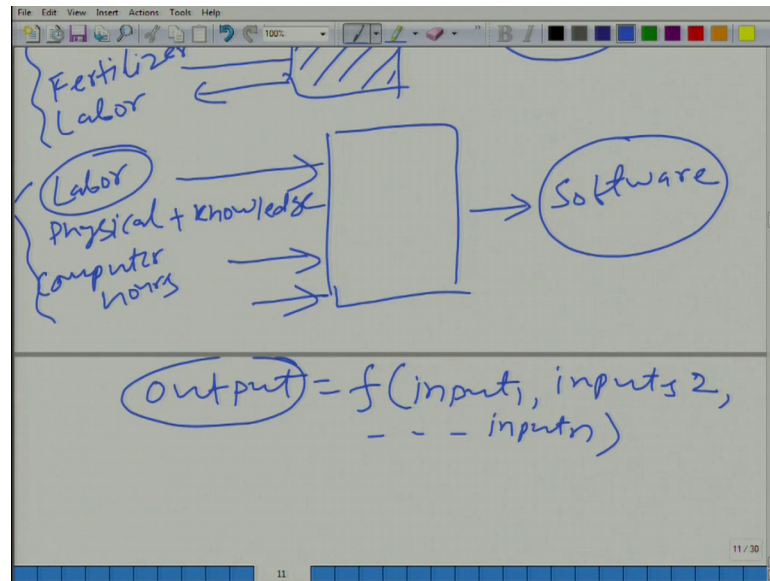 File Edit View Insert Actions Tools Help
100%
B I
Fertilizer
Labor
Labor
Physical + Knowledge
Computer
hours
Software
output = f(input1, inputs 2,
- - - inputn)
11 / 30
11